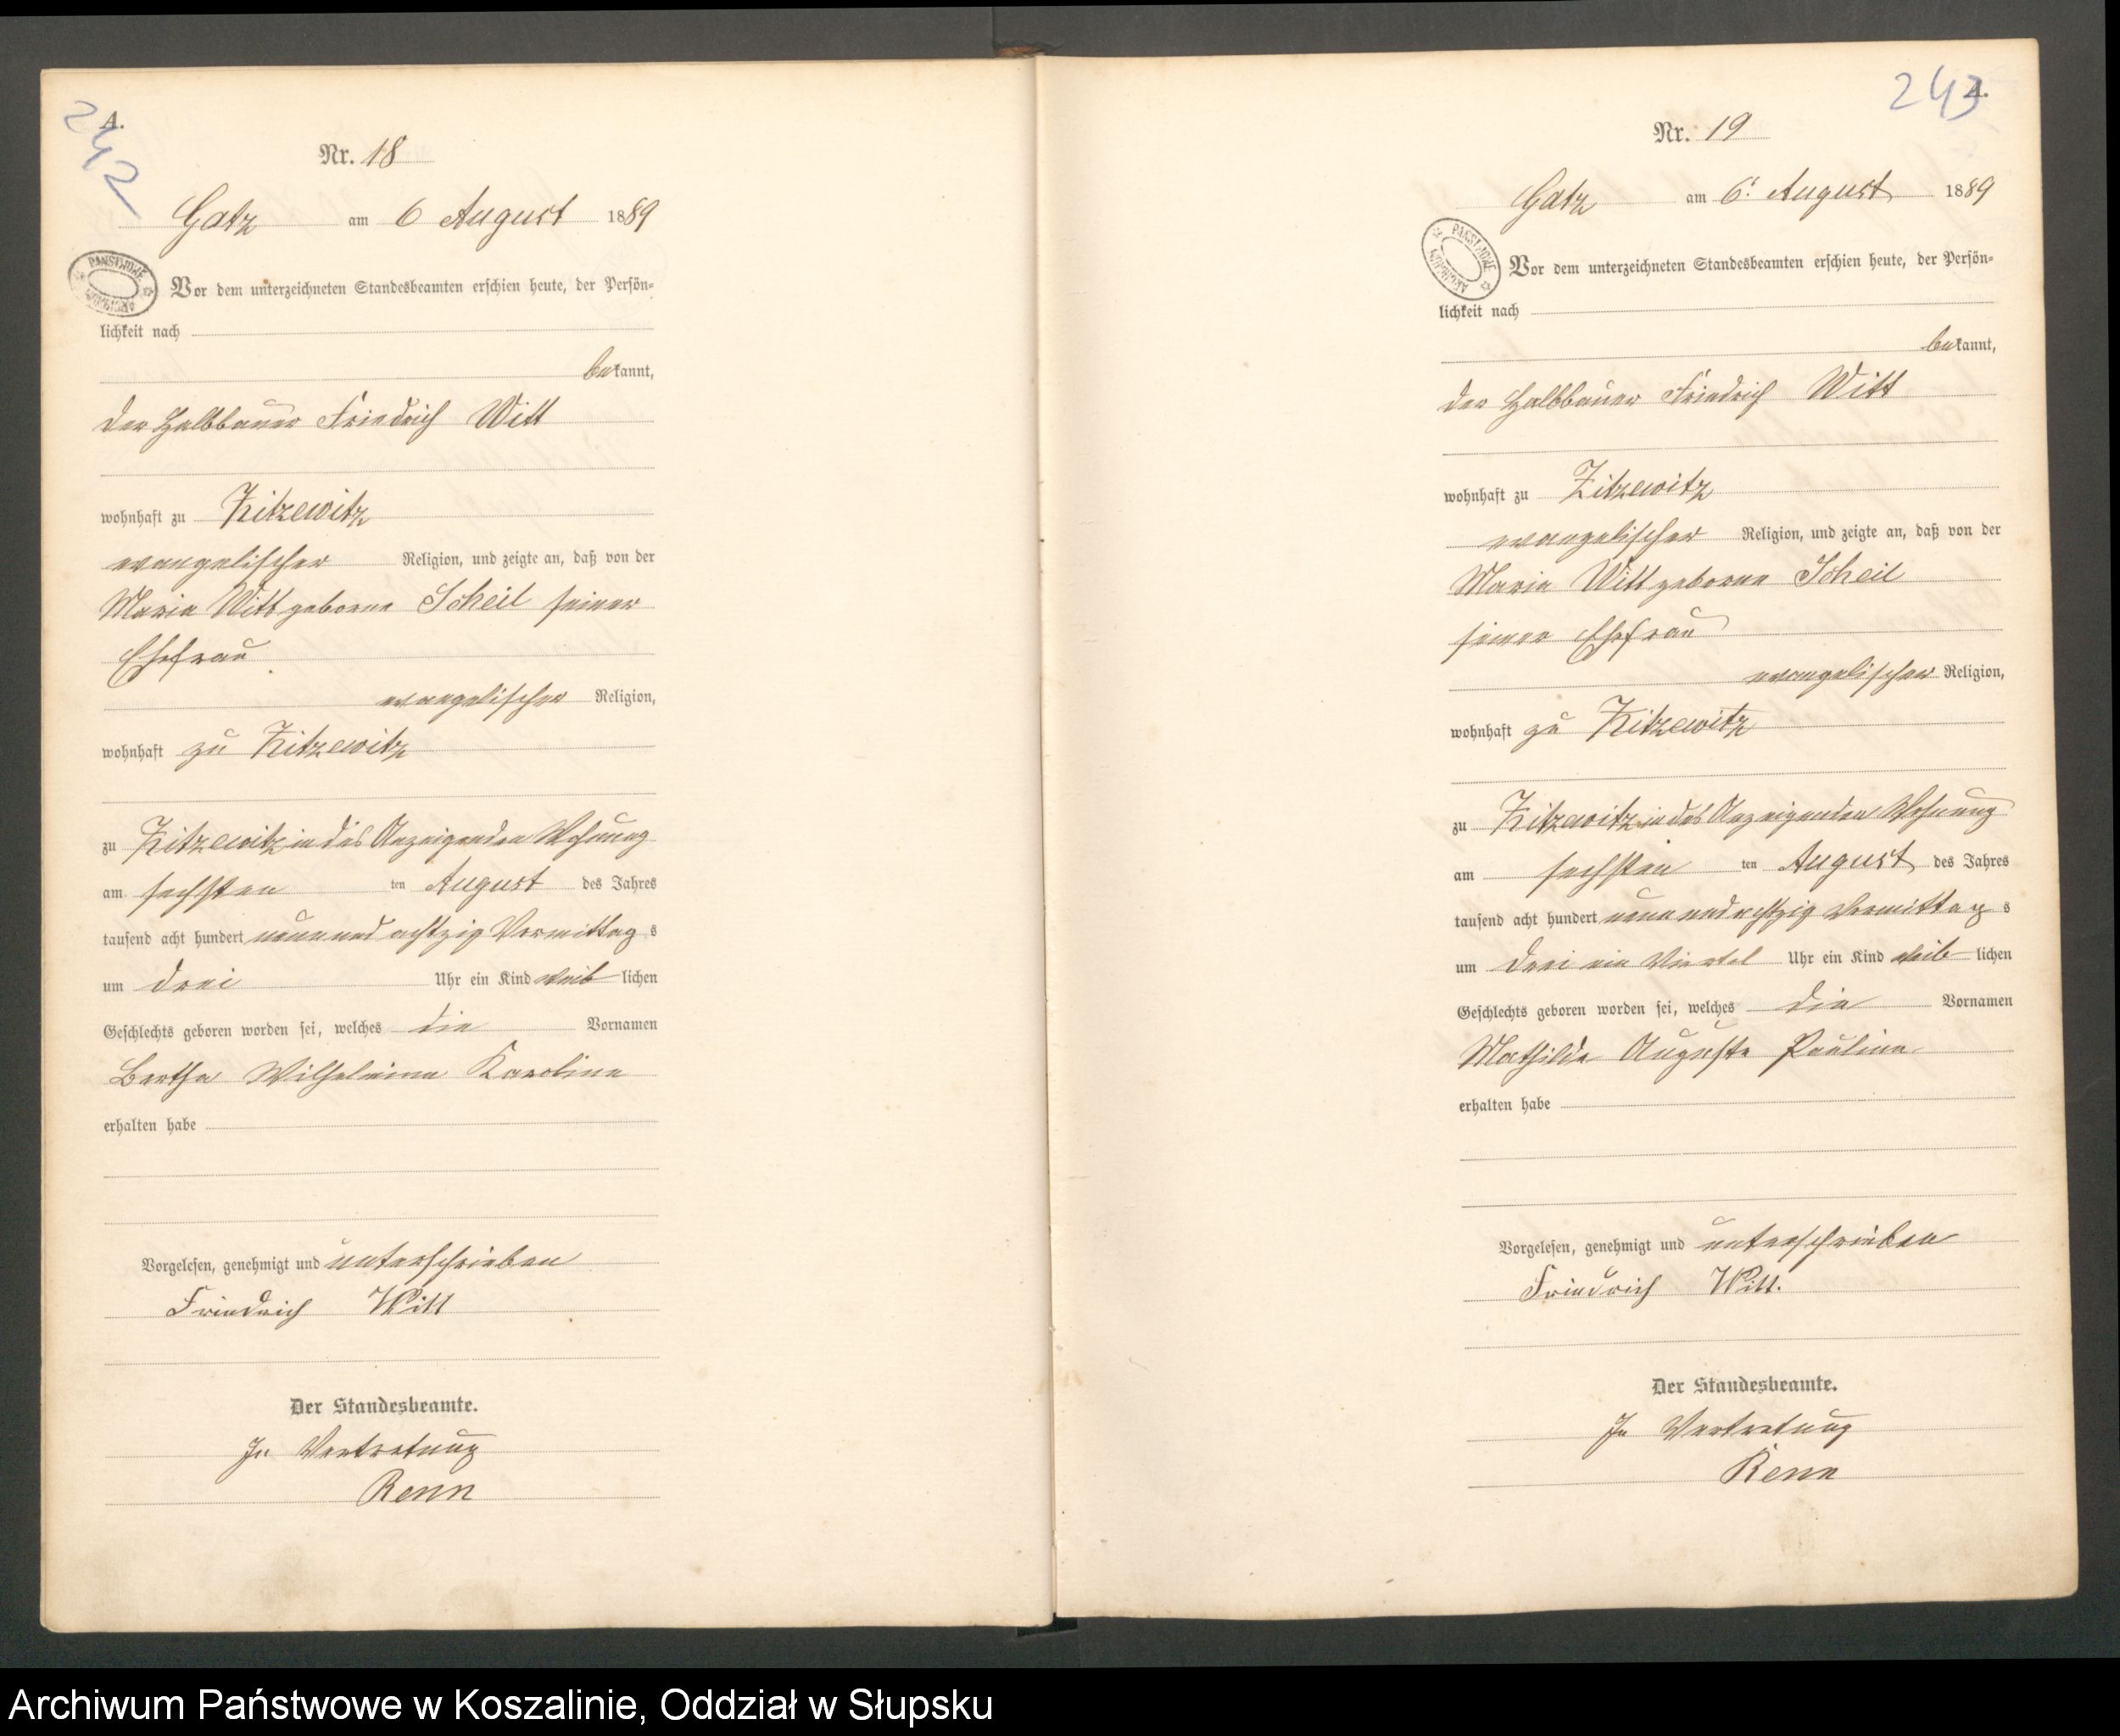 242
A.
Nr. 18
Gatz am 6 August 1889
PANSTWOWE ARCHIWUM
Vor dem unterzeichneten Standesbeamten erschien heute, der Persön-
lichkeit nach
bekannt,
der Halbbauer Friedrich Witt
wohnhaft zu Zitzewitz
evangelischer Religion, und zeigte an, daß von der
Maria Witt geborne Scheil seiner
Ehefrau
evangelischer Religion,
wohnhaft zu Zitzewitz
zu Zitzewitz in des Anzeigenden Wohnung
am sechsten ten August des Jahres
tausend acht hundert neun und achtzig Vormittag s
um drei Uhr ein Kind weib lichen
Geschlechts geboren worden sei, welches die Vornamen
Bertha Wilhelmine Karoline
erhalten habe
Vorgelesen, genehmigt und unterschrieben
Friedrich Witt
Der Standesbeamte.
In Vertretung
Renn
243
A.
Nr. 19
Gatz am 6. August 1889
PANSTWOWE ARCHIWUM
Vor dem unterzeichneten Standesbeamten erschien heute, der Persön-
lichkeit nach
bekannt,
der Halbbauer Friedrich Witt
wohnhaft zu Zitzewitz
evangelischer Religion, und zeigte an, daß von der
Maria Witt geborne Scheil
seiner Ehefrau
evangelischer Religion,
wohnhaft zu Zitzewitz
zu Zitzewitz in des Anzeigenden Wohnung
am sechsten ten August des Jahres
tausend acht hundert neun und achtzig Vormittag s
um drei ein Viertel Uhr ein Kind weib lichen
Geschlechts geboren worden sei, welches die Vornamen
Mathilde Auguste Pauline
erhalten habe
Vorgelesen, genehmigt und unterschrieben
Friedrich Witt.
Der Standesbeamte.
In Vertretung
Renn
Archiwum Państwowe w Koszalinie, Oddział w Słupsku